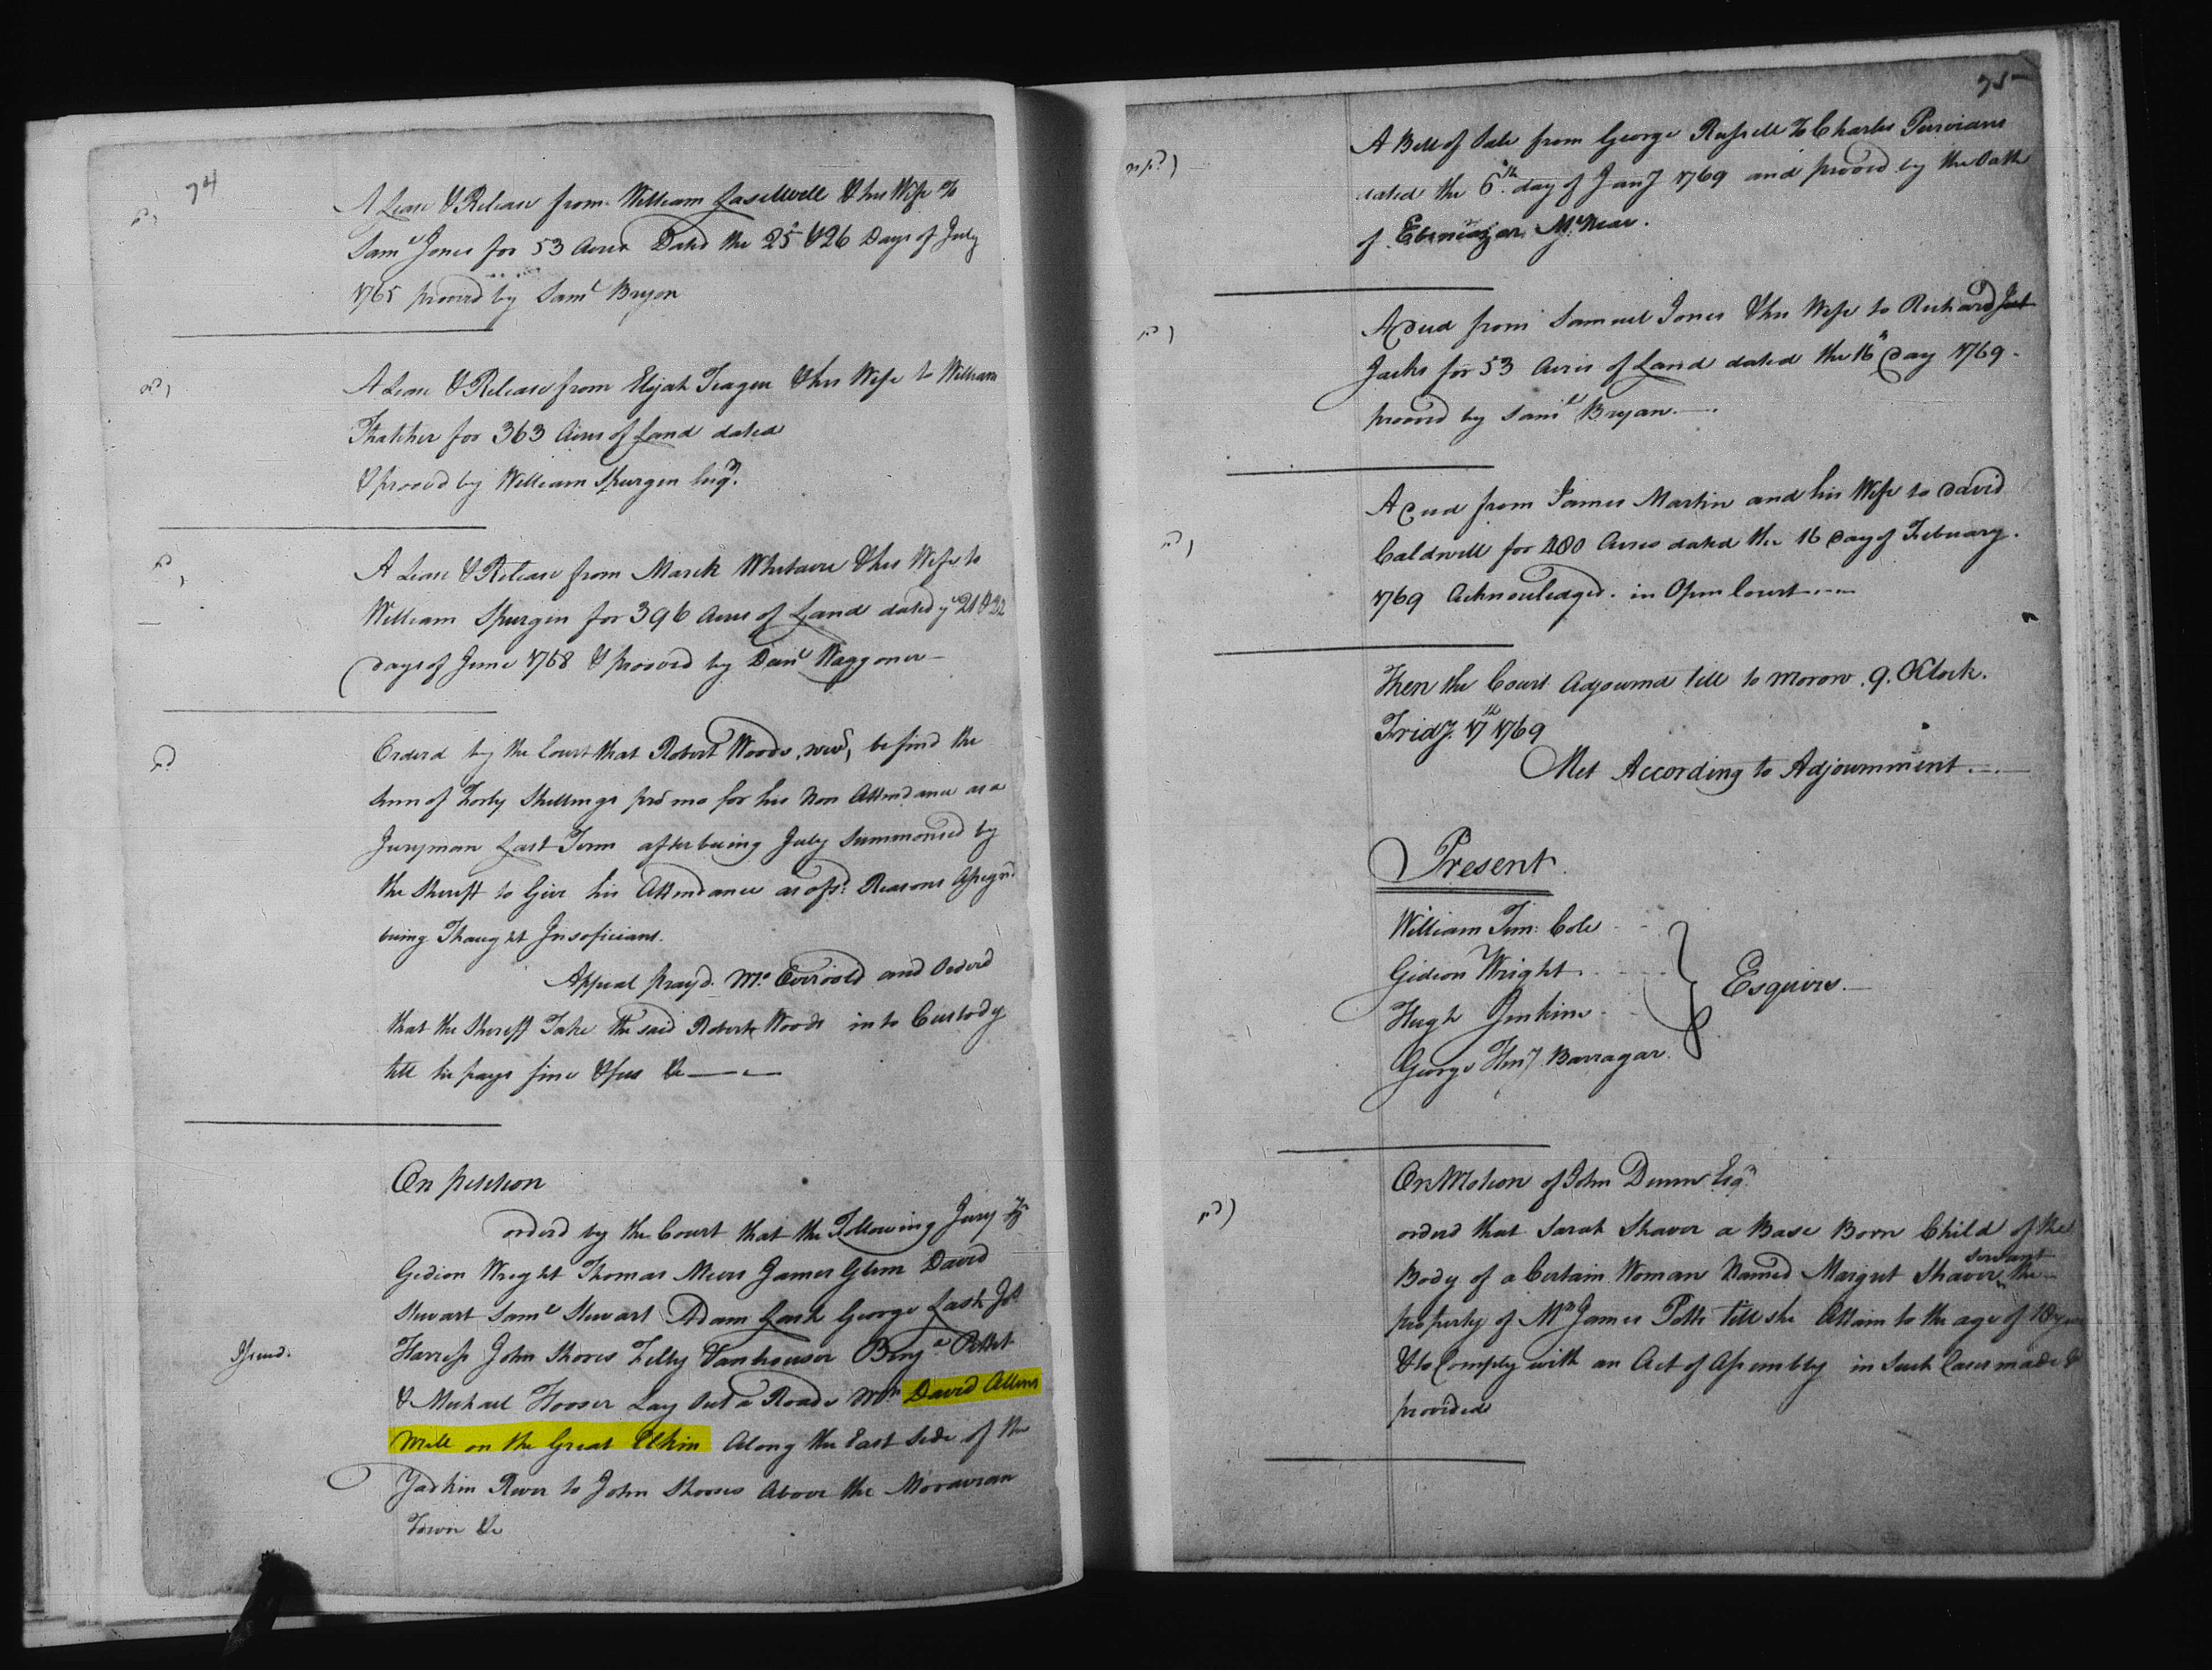 74
A Lease & Release from William Gasellwell & his Wife to
Sam.l Jones for 53 Acres Dated the 25 & 26 Days of July
1765 proved by Sam.l Bryon
A Lease & Release from Elijah Teague & his Wife to William
Thatcher for 363 Acres of Land dated
& prooved by William Spurgen Esq.r
A Lease & Release from Mark Whitaere & his Wife to
William Spurgin for 396 Acres of Land dated y.e 21 & 22
days of June 1768 & prooved by Dan.l Waggoner
Orderd by the Court that Robert Woods, be find the
Sum of Forty Shillings for his Non Attendance as a
Juryman Last Term after being July Summonsed by
the Sheriff to Give his Attendance as afs.d Reasons Assign.d
being Thaught Insoficiant.
Appeal pray.d and Orderd
that the Sheriff Take the said Robert Woods into Custody
till he pays fine & fees &c
On petition
orderd by the Court that the Following Jury
Gedion Wright Thomas Meers James Glenn David
Stewart Sam.l Stewart Adam Lash George Lash
Harress John Shores Zelley Vanhouser Benj.a Pettet
Issued.
& Michael Hooser Lay Out a Roade David Allens
Mill on the Great Elkin Along the East Side of the
Yadkin River to John Shoores Above the Moravian
Town &c
75
A Bill of Sale from George Russell To Charles Purvians
dated the 6.th day of Jan.y 1769 and prooved by the Oath
of Ebenezar McNear.
A Deed from Samuel Jones & his Wife to Richard
Jacks for 53 Acres of Land dated the 16 Day 1769
prooved by Sam.l Bryan
A Deed from James Martin and his Wife to David
Caldwell for 480 Acres dated the 16 Day of Febuary
1769 Acknowledged in Open Court
Then the Court Adjournd till to Morow 9. OClock.
Frid.y 17th 1769
Met According to Adjournment
Present
William Tem: Cole
Gideon Wright
Hugh Jenkins
George Hen.y Barragar
Esquires
On Motion of John Dunn Esq.r
orderd that Sarah Shaver a Base Born Child of the
Body of a Certain Woman Named Margret Shaver servant the
property of Mr James Potts till she Attain to the age of 18 years
& to Comply with an Act of Assembly in Such Cases made &
provided